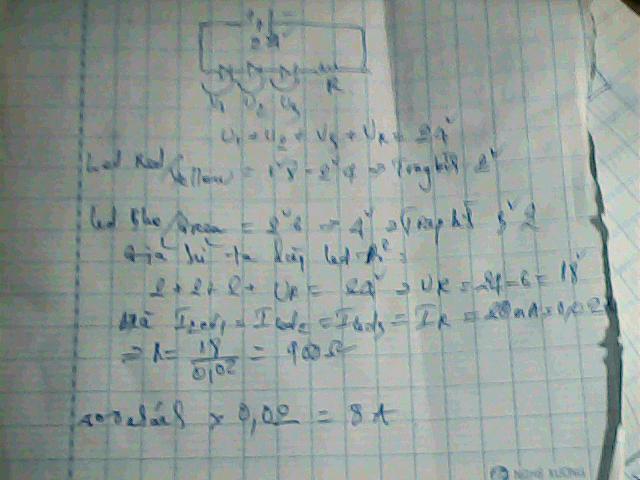 24V
R
U1 U2 U3
U1 + U2 + U3 + UR = 24V
Led Red/Yellow = 1V8 - 2V4 => Trung bình 2V
Led Blue/Green = 2V6 -> 4V => Trung bình 3V2
Giả sử ta lấy led
2 + 2 + 2 + UR = 24V => UR = 24 - 6 = 18V
Mà Iled1 = Iled2 = Iled3 = IR = 20mA = 0,02
=> R = 18/0,02 = 900Ω
x 0,02 = 8A
NONG XUONG